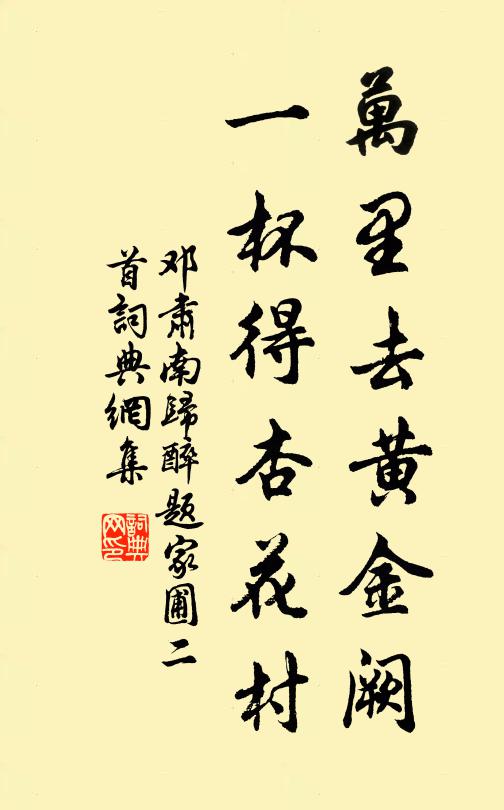 萬里去黄金阙
一杯得杏花村
邓肅南歸醉题家圃二
首詞典網集
詞典
网印